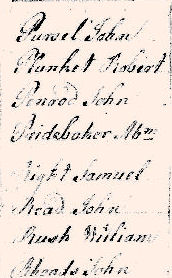 Pursel John
Plunket Robert
Penrod John
Pridebaker Abm
Right Samuel
Read John
Rush William
Rhoads John